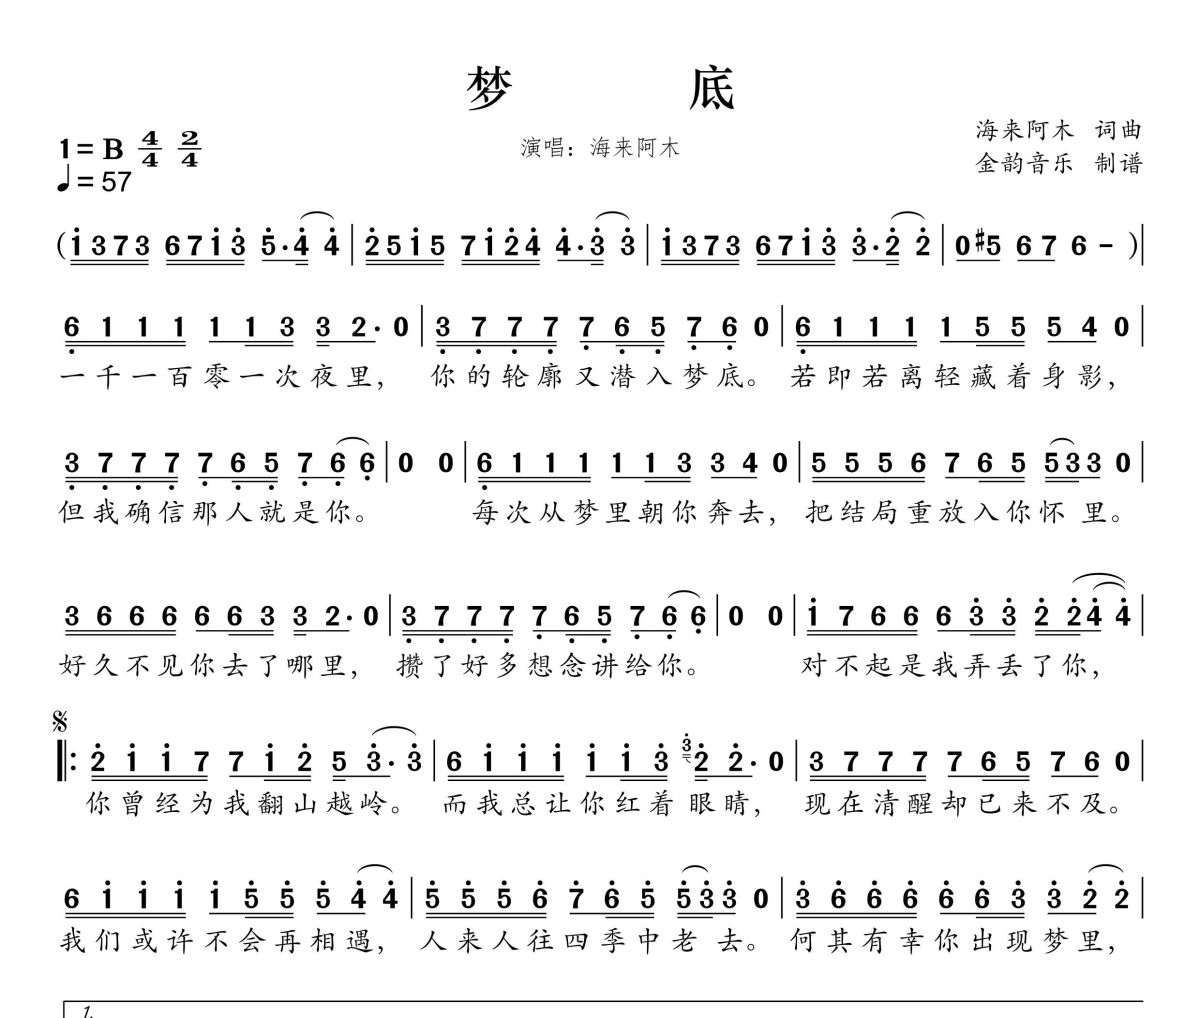 梦 底
1= B 4/4 2/4
演唱：海来阿木
海来阿木 词曲
♩= 57
金韵音乐 制谱
( 1 3 7 3 6 7 1 3 5 · 4 4 | 2 5 1 5 7 1 2 4 4 · 3 3 | 1 3 7 3 6 7 1 3 3 · 2 2 | 0 #5 6 7 6 - ) |
6 1 1 1 1 1 3 3 2 · 0 | 3 7 7 7 7 6 5 7 6 0 | 6 1 1 1 1 5 5 5 4 0 |
一千一百零一次夜里， 你的轮廓又潜入梦底。 若即若离轻藏着身影，
3 7 7 7 7 6 5 7 6 6 | 0 0 | 6 1 1 1 1 1 3 3 4 0 | 5 5 5 6 7 6 5 5 3 3 0 |
但我确信那人就是你。 每次从梦里朝你奔去， 把结局重放入你怀 里。
3 6 6 6 6 6 3 3 2 · 0 | 3 7 7 7 7 6 5 7 6 6 | 0 0 | 1 7 6 6 6 3 3 2 2 4 4 |
好久不见你去了哪里， 攒了好多想念讲给你。 对不起是我弄丢了你，
𝄋
‖: 2 1 1 7 7 1 2 5 3 · 3 | 6 1 1 1 1 1 3 3 2 2 · 0 | 3 7 7 7 7 6 5 7 6 0 |
你曾经为我翻山越岭。 而我总让你红着 眼睛， 现在清醒却已来不及。
6 1 1 1 1 5 5 5 4 4 | 5 5 5 6 7 6 5 5 3 3 0 | 3 6 6 6 6 6 3 3 2 2 |
我们或许不会再相遇， 人来人往四季中老 去。 何其有幸你出现梦里，
1.